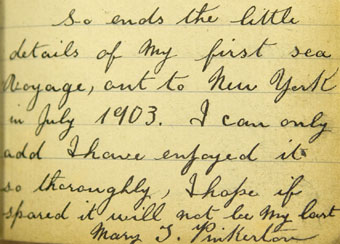 So ends the little
details of my first sea
Voyage, out to New York
in July 1903. I can only
add I have enjoyed it
so thoroughly, I hope if
spared it will not be my last
Mary T. Pinkerton